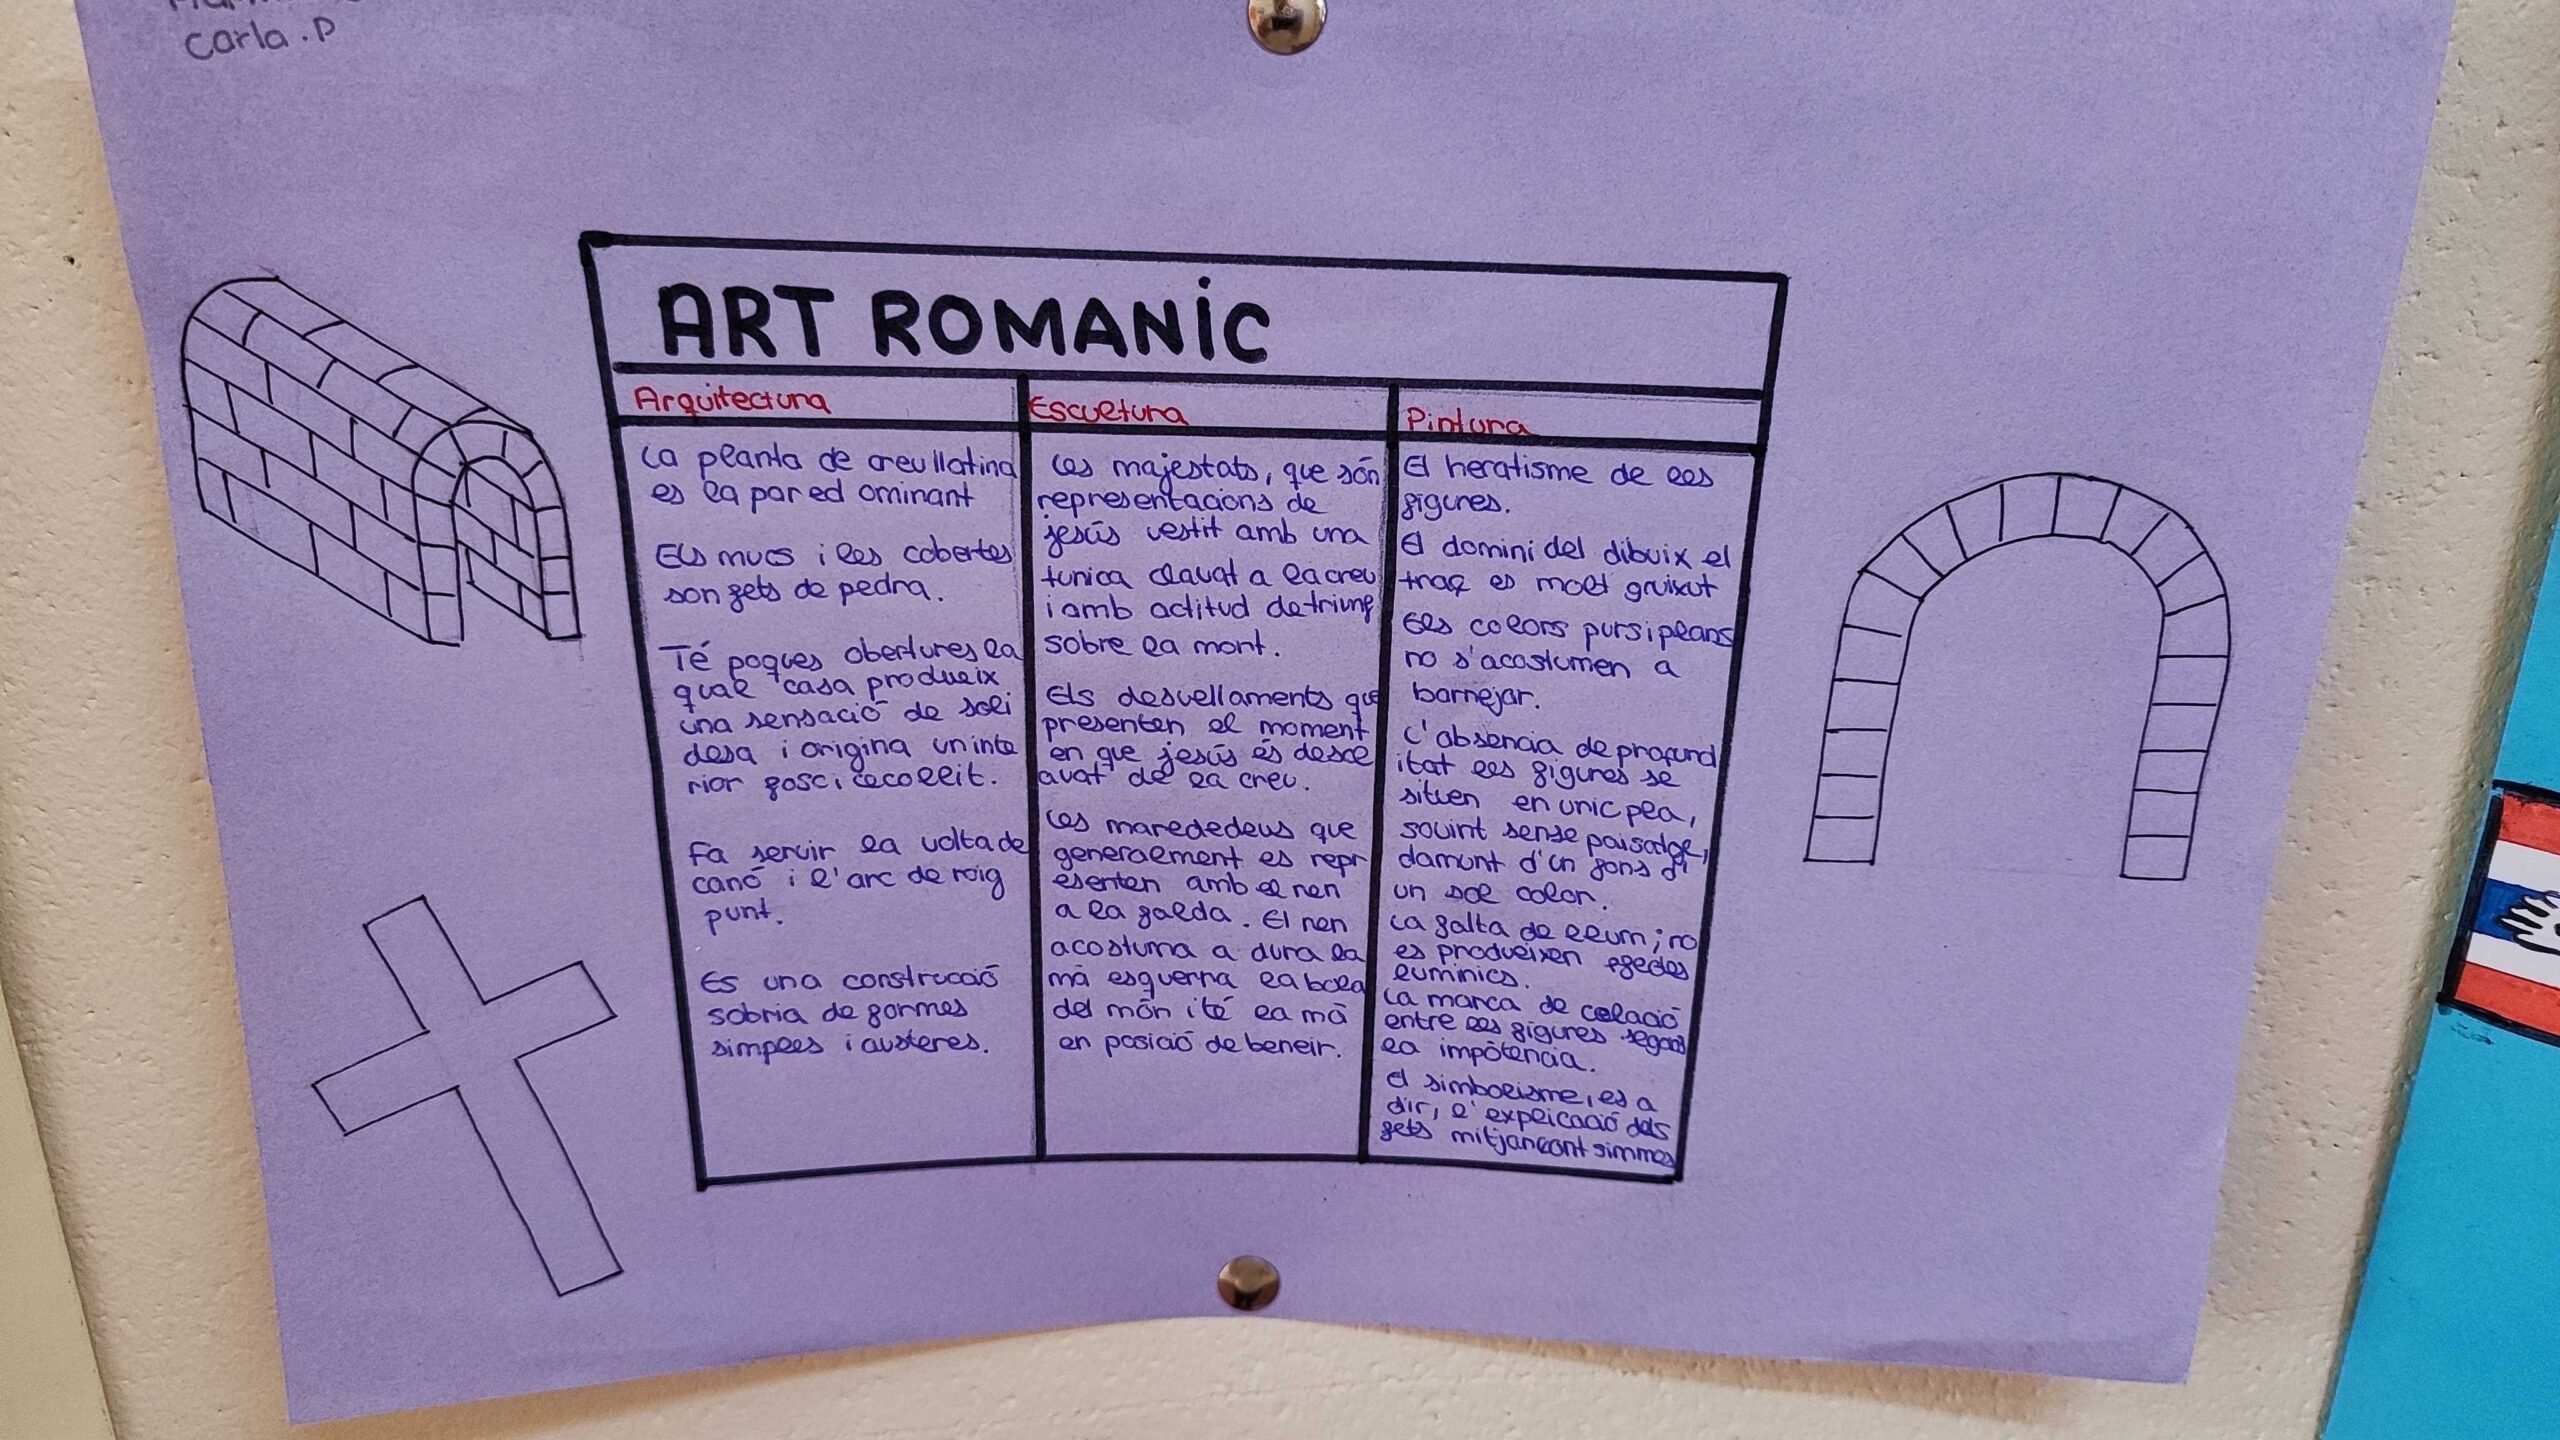 Carla.P
ART ROMANIC
Arquitectura
La planta de creu llatina
es la par ed ominant
Els murs i les cobertes
son fets de pedra.
Té poques obertures la
qual casa produeix
una sensació de soli
desa i origina un inte
rior fosc i recollit.
Fa servir la volta de
canó i l'arc de mig
punt.
Es una construcció
sobria de formes
simples i austeres.
Escultura
Les majestats, que són
representacions de
jesús vestit amb una
tunica clavat a la creu
i amb actitud de triunf
sobre la mort.
Els desvellaments que
presenten el moment
en que jesús és descl
avat de la creu.
Les marededeus que
generalment es repr
esenten amb el nen
a la falda. El nen
acostuma a dura la
mà esquerra la bola
del món i té la mà
en posició de beneir.
Pintura
El heratisme de les
figures.
El domini del dibuix el
traç es molt gruixut
Els colors purs i plans
no s'acostumen a
barrejar.
L'absencia de profund
itat les figures se
situen en unic pla,
sovint sense paisatge,
damunt d'un fons d'
un sol color.
La falta de llum; no
es produeixen efectes
luminics.
La marca de relació
entre les figures segons
la impòtencia.
El simbolisme, es a
dir, l'explicació dels
fets mitjançant simmes